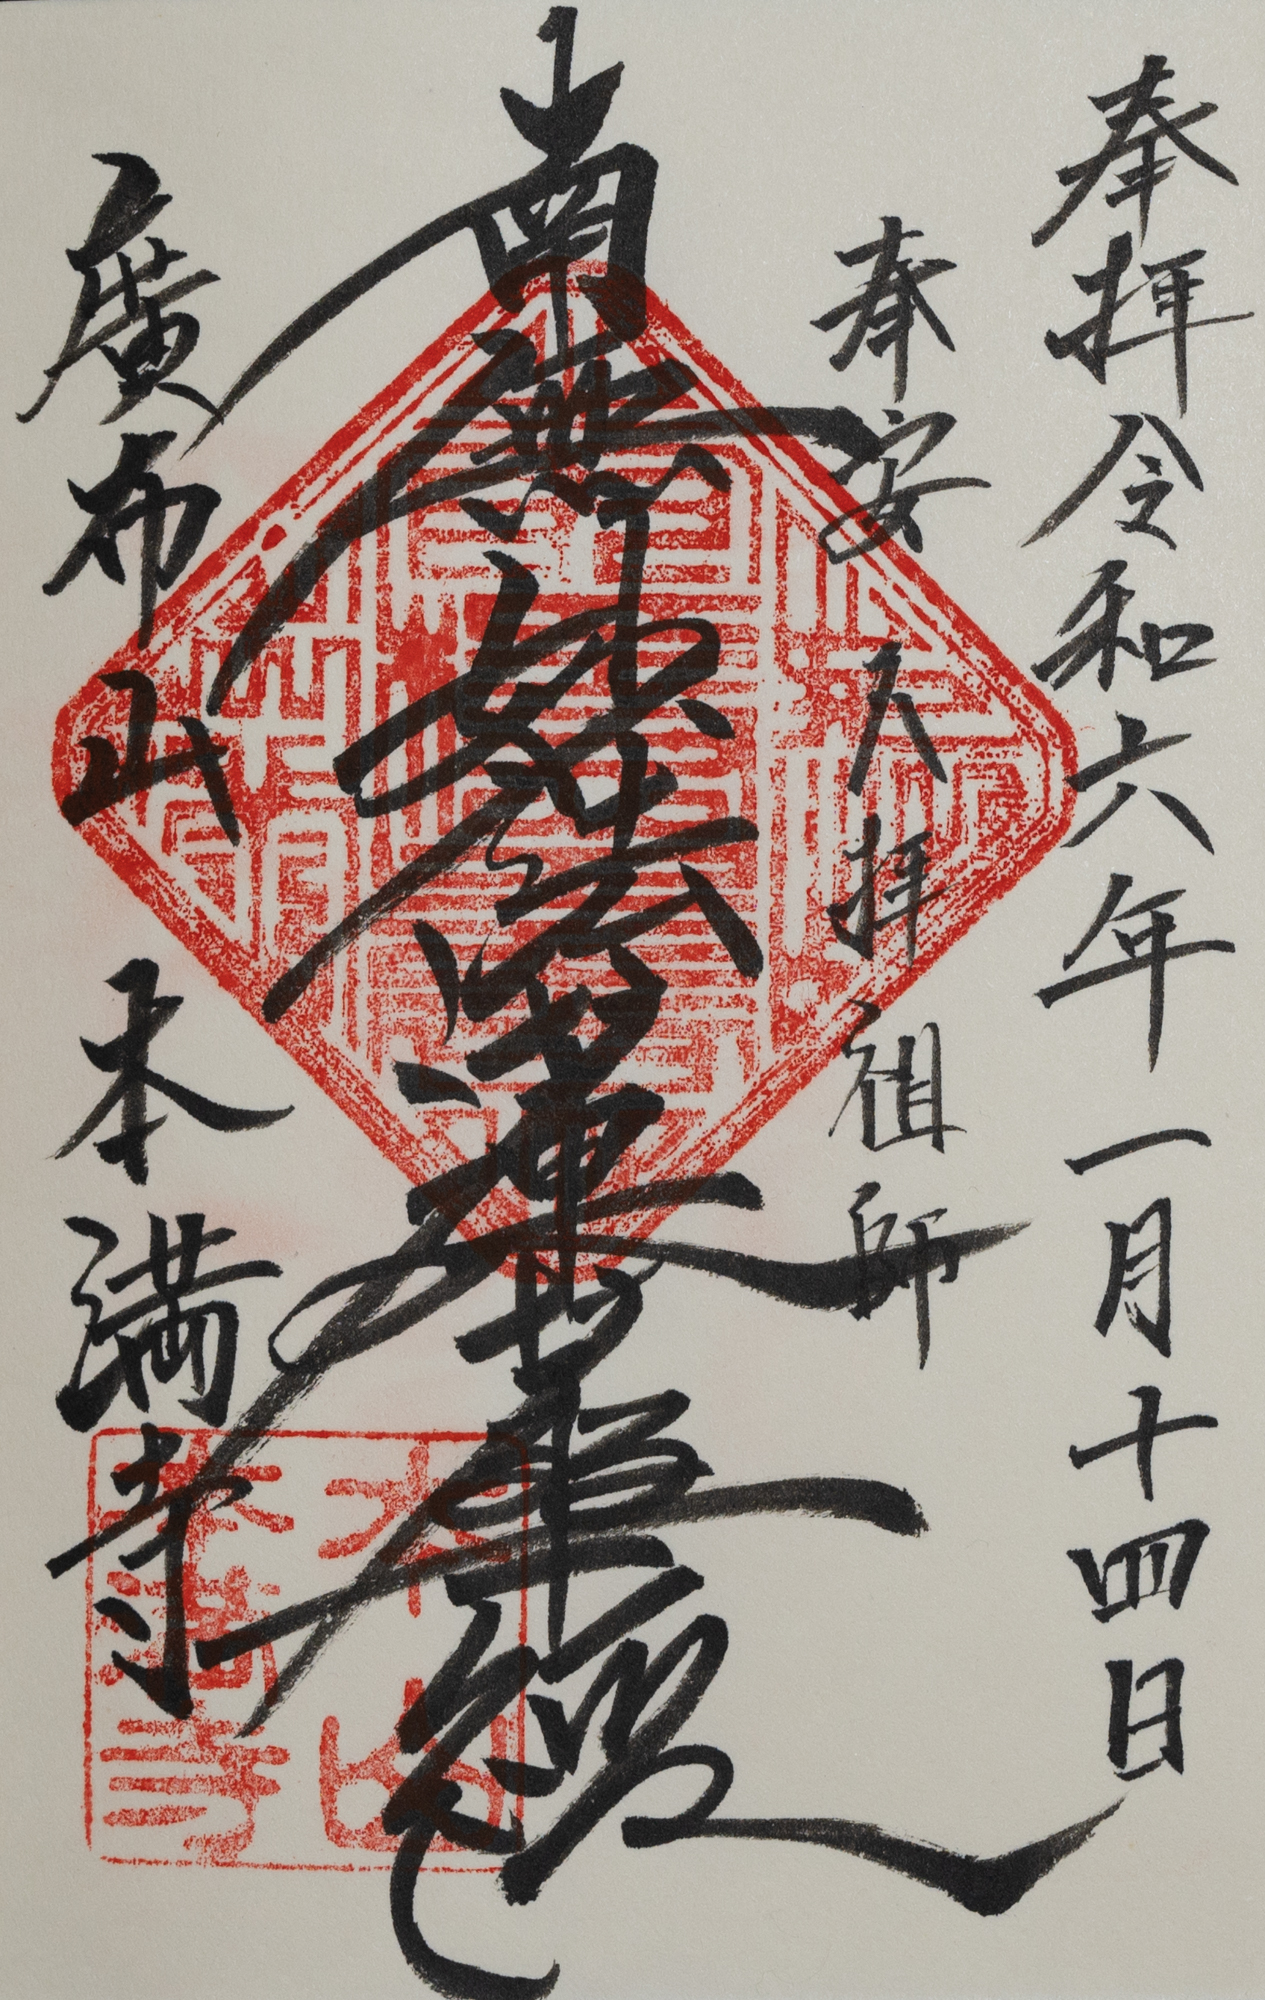 奉拝 令和六年一月十四日
奉安 人拝祖師
南無妙法蓮華経
廣布山 本満寺
本山
本満寺